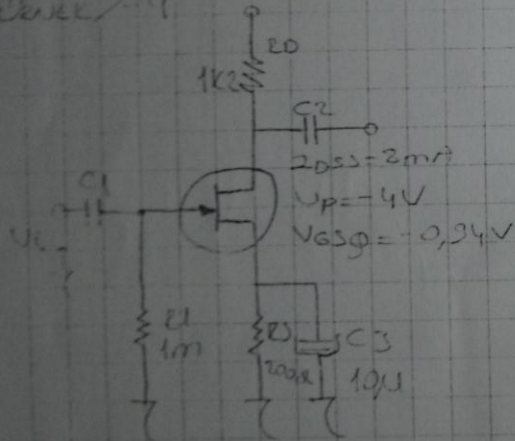 RD
1K2
C2
IDSS=2mA
C1
Vp=-4V
VGSQ=-0,94V
Vi
R1
1m
RS
C3
200Ω
10µ